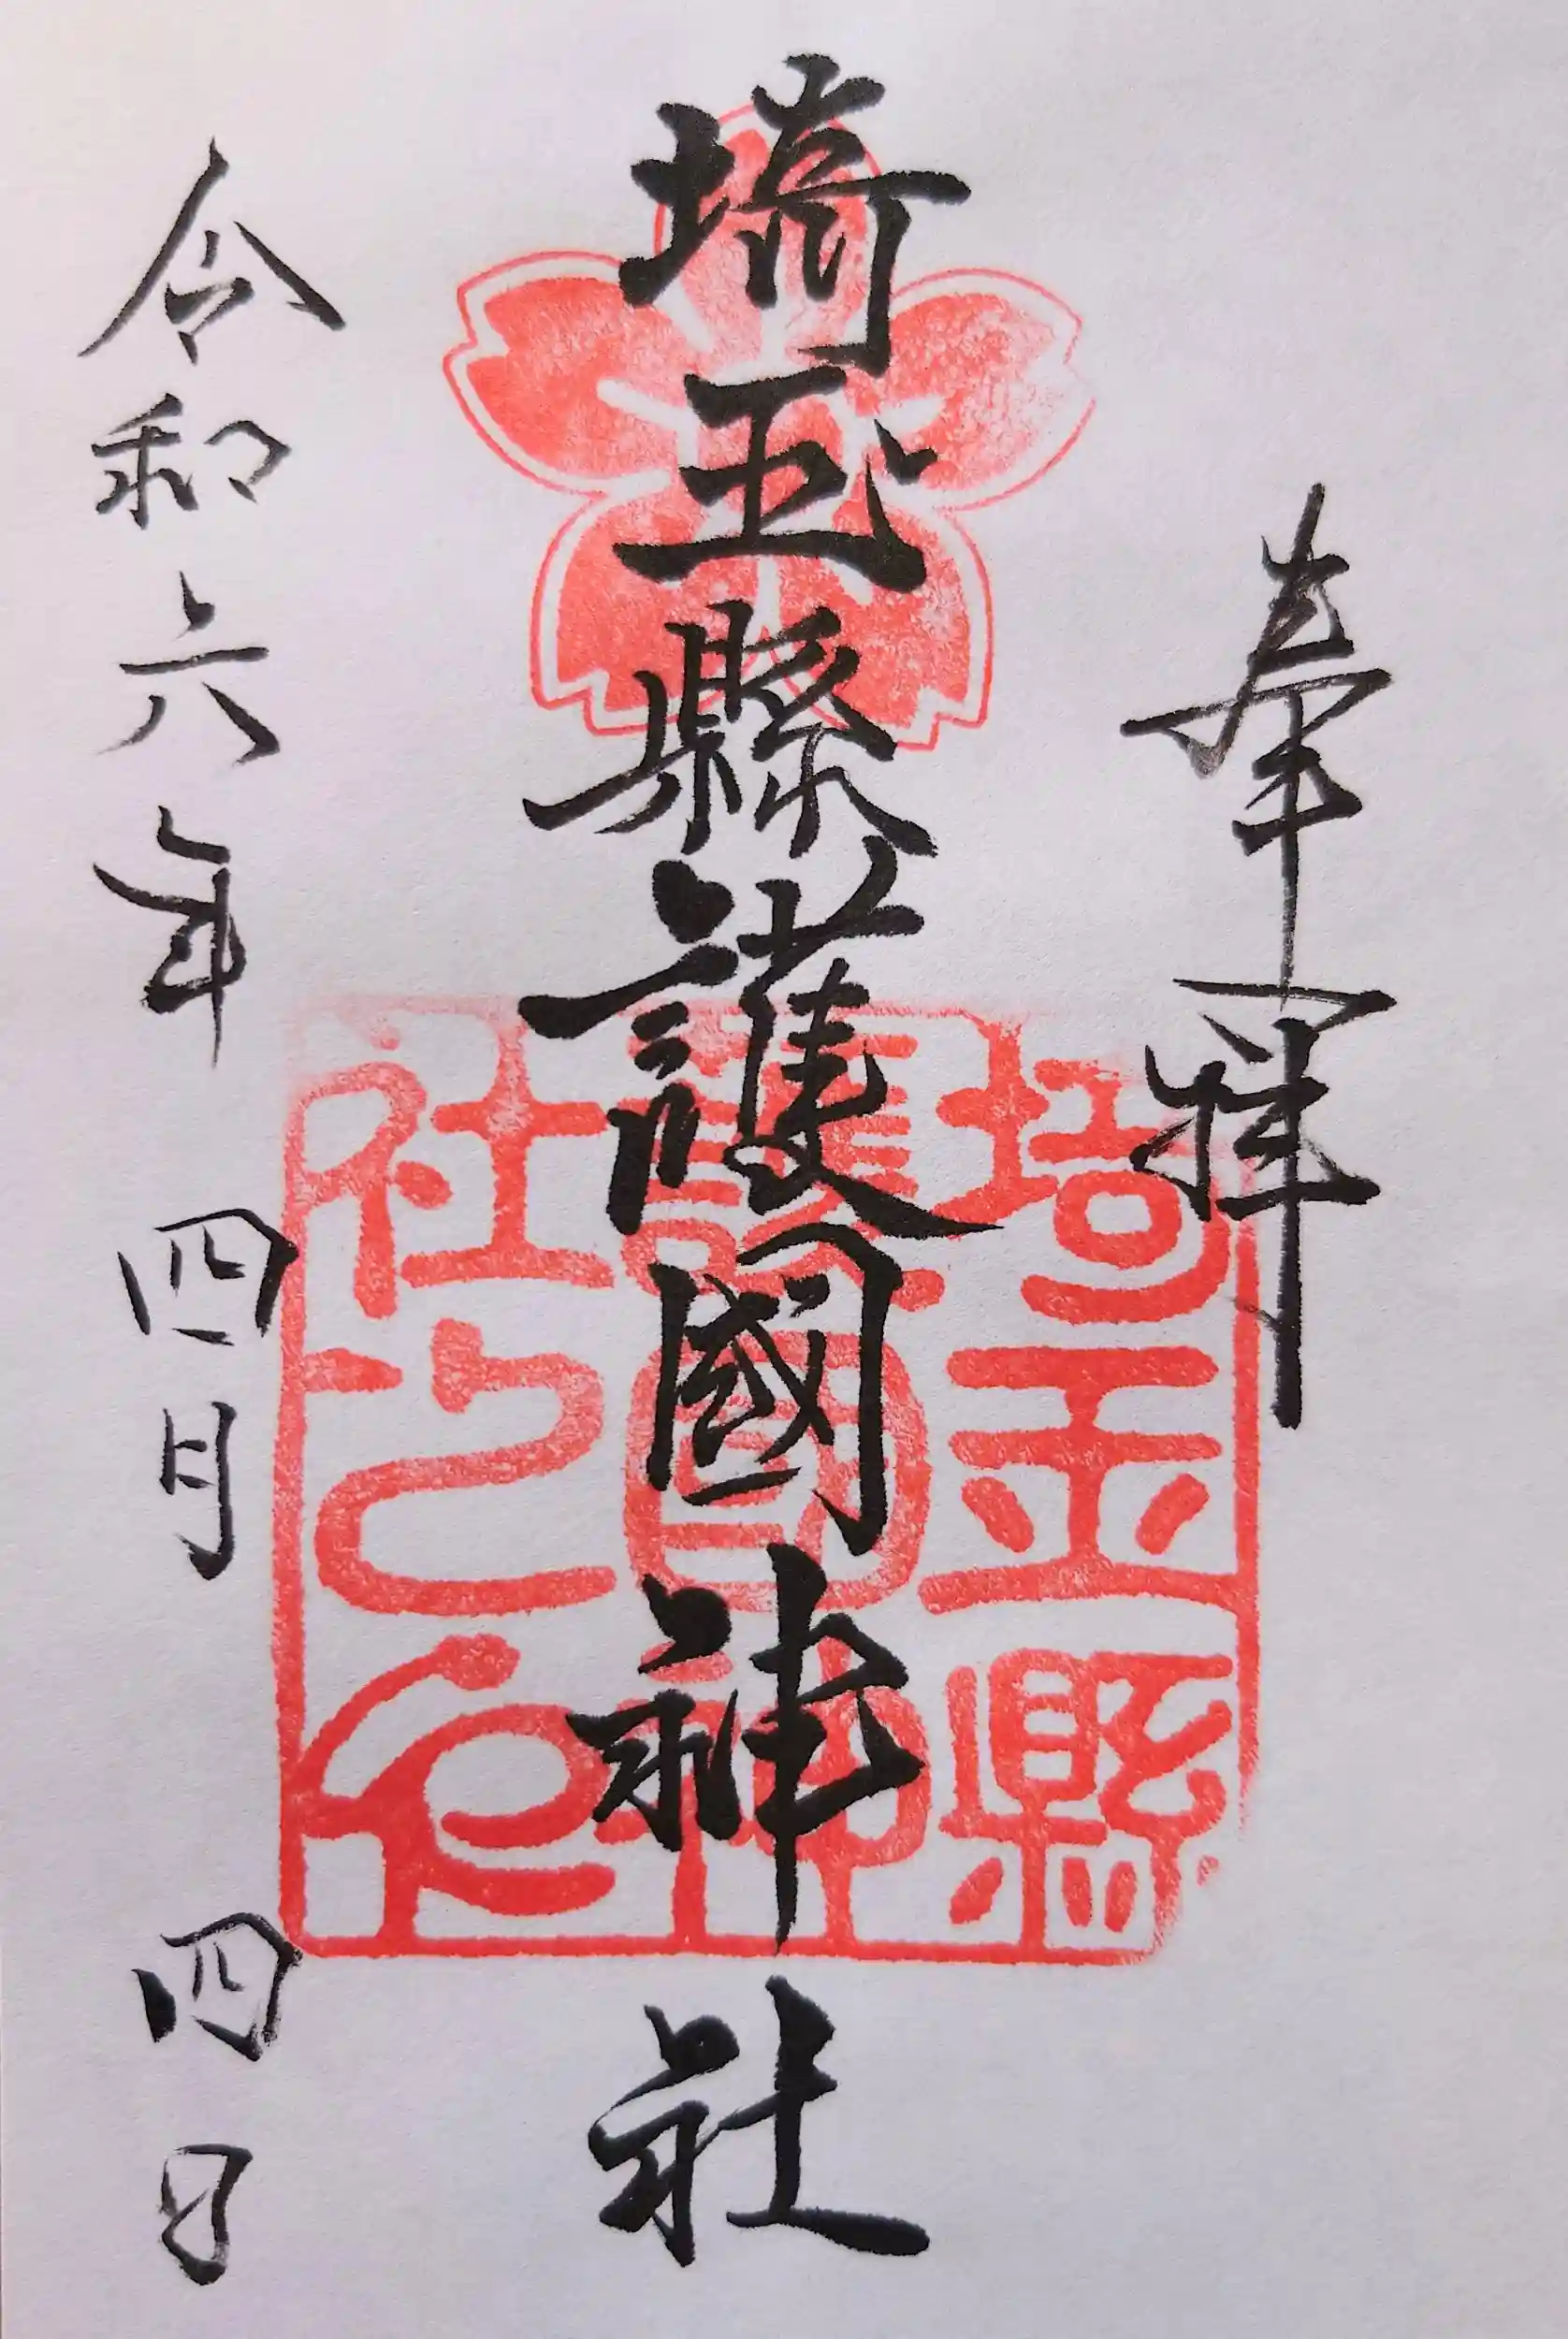 奉拜
埼玉縣護國神社
埼玉縣
護國神
社之印
令和六年 四月 四日